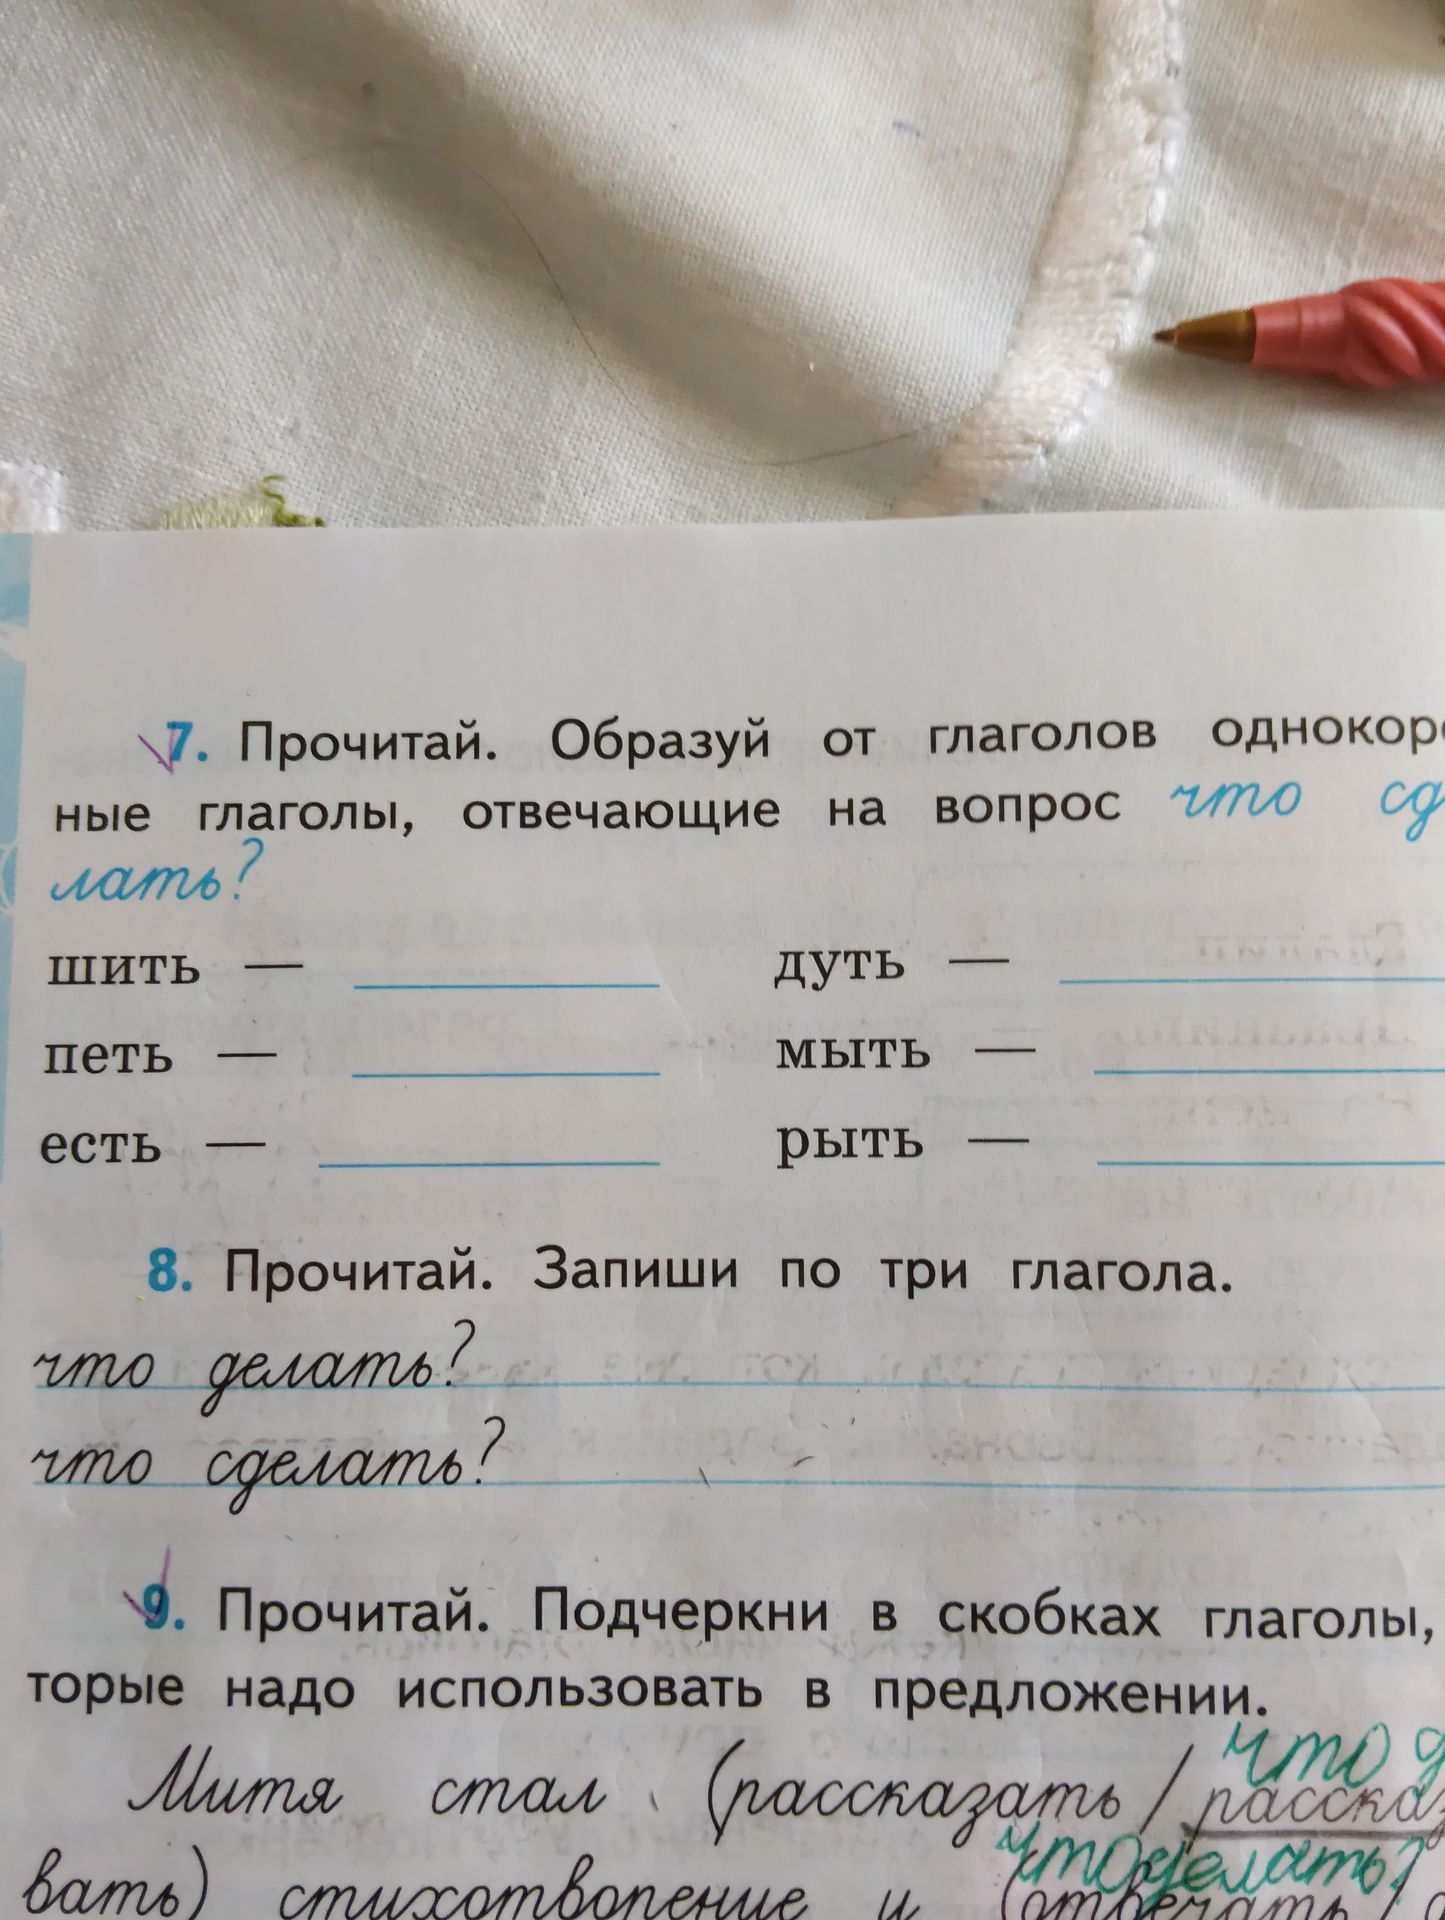 7. Прочитай. Образуй от глаголов однокор
ные глаголы, отвечающие на вопрос что сд
лать?
шить — дуть —
петь — мыть —
есть — рыть —
8. Прочитай. Запиши по три глагола.
что делать?
что сделать?
9. Прочитай. Подчеркни в скобках глаголы,
торые надо использовать в предложении.
что д
Митя стал (рассказать / расска
что делать?
вать) стихотворение и (отвечать /